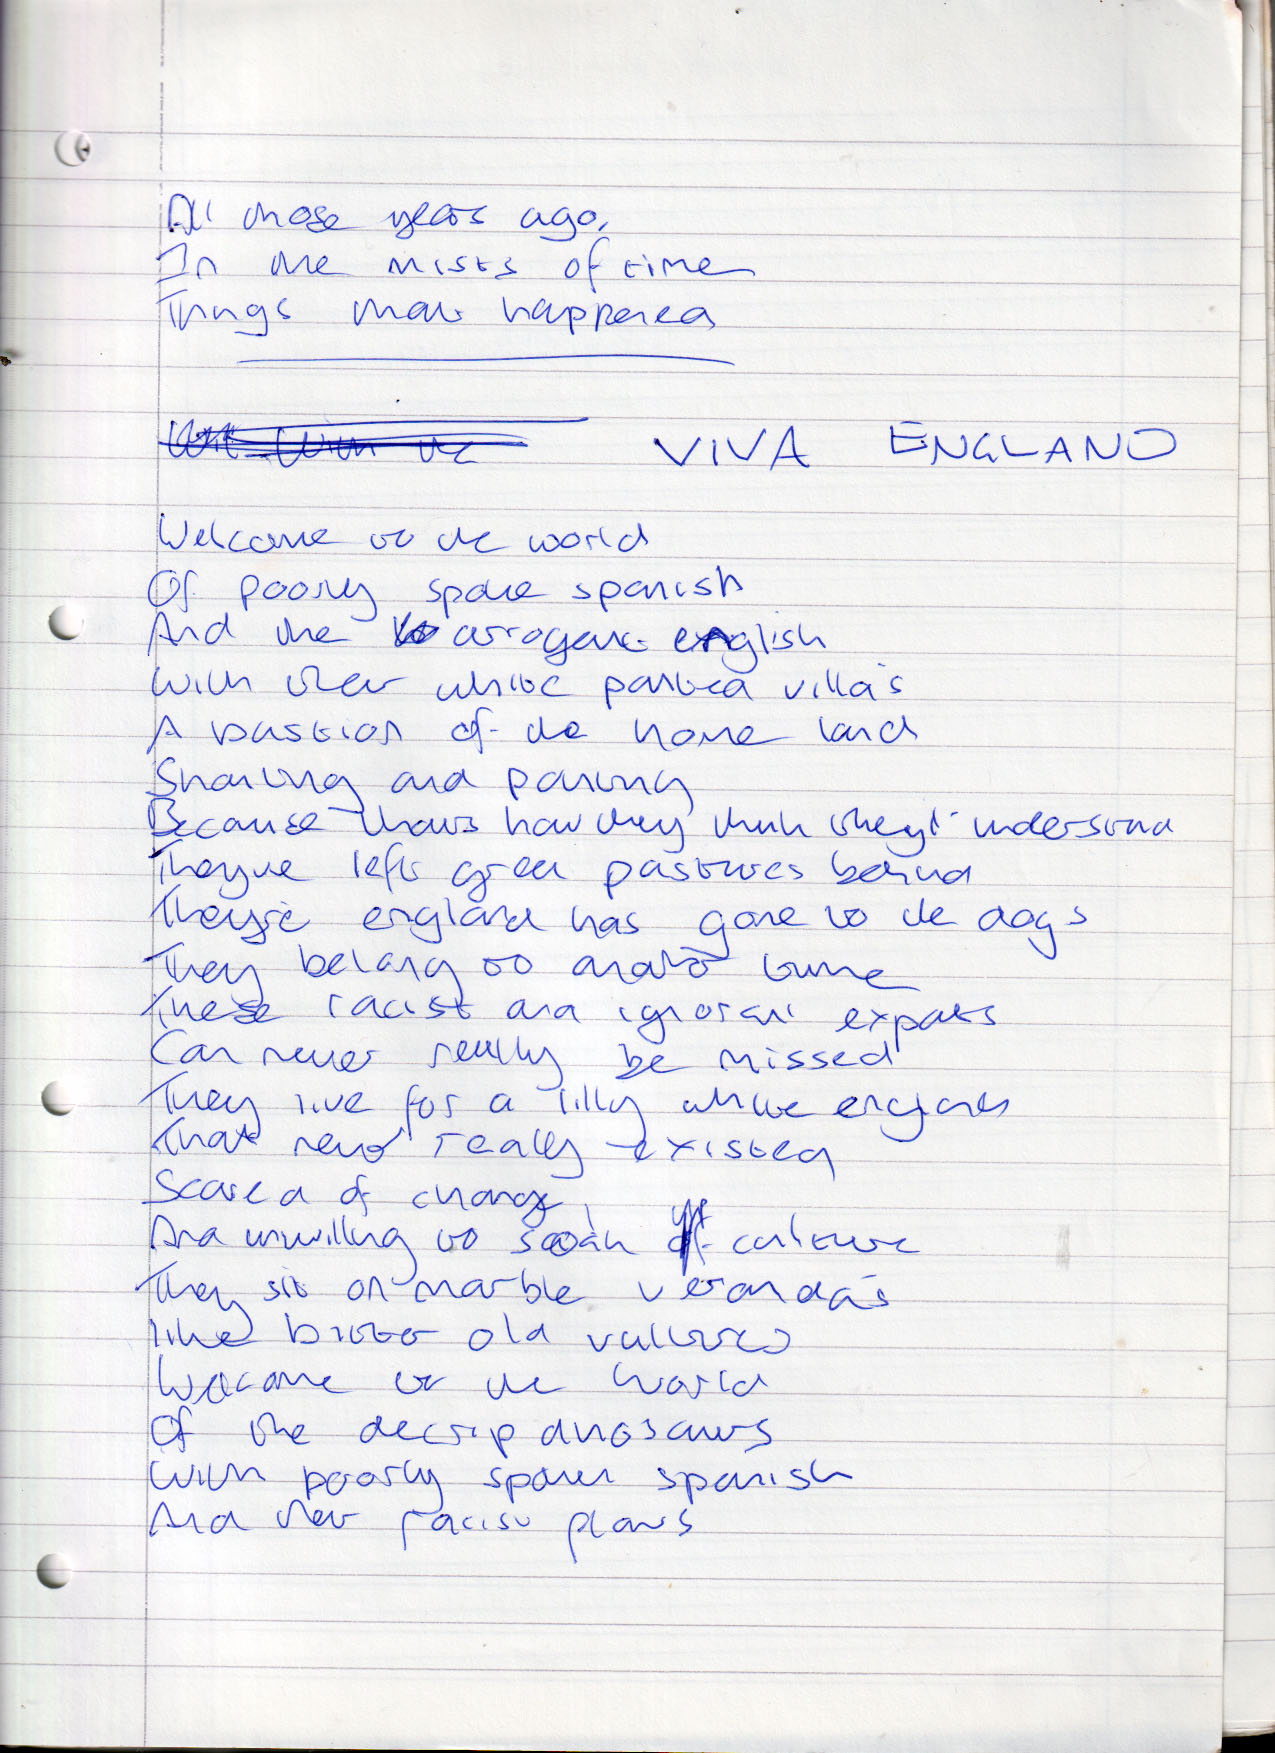 All those years ago,
In the mists of time
Things that happened
VIVA ENGLAND
Welcome to the world
Of poorly spoke spanish
And the arrogant english
With their white painted villa's
A bastion of the home land
Shouting and pointing
Because thats how they think they'll understand
They've left green pastures behind
They england has gone to the dogs
They belong to another time
These racist and ignorant expats
Can never really be missed
They live for a lilly white england
That never really existed
Scared of change
And unwilling to soak culture
They sit on marble veranda's
like bitter old vultures
Welcome to the world
Of the decrip dinosaurs
With poorly spoken spanish
And their racist